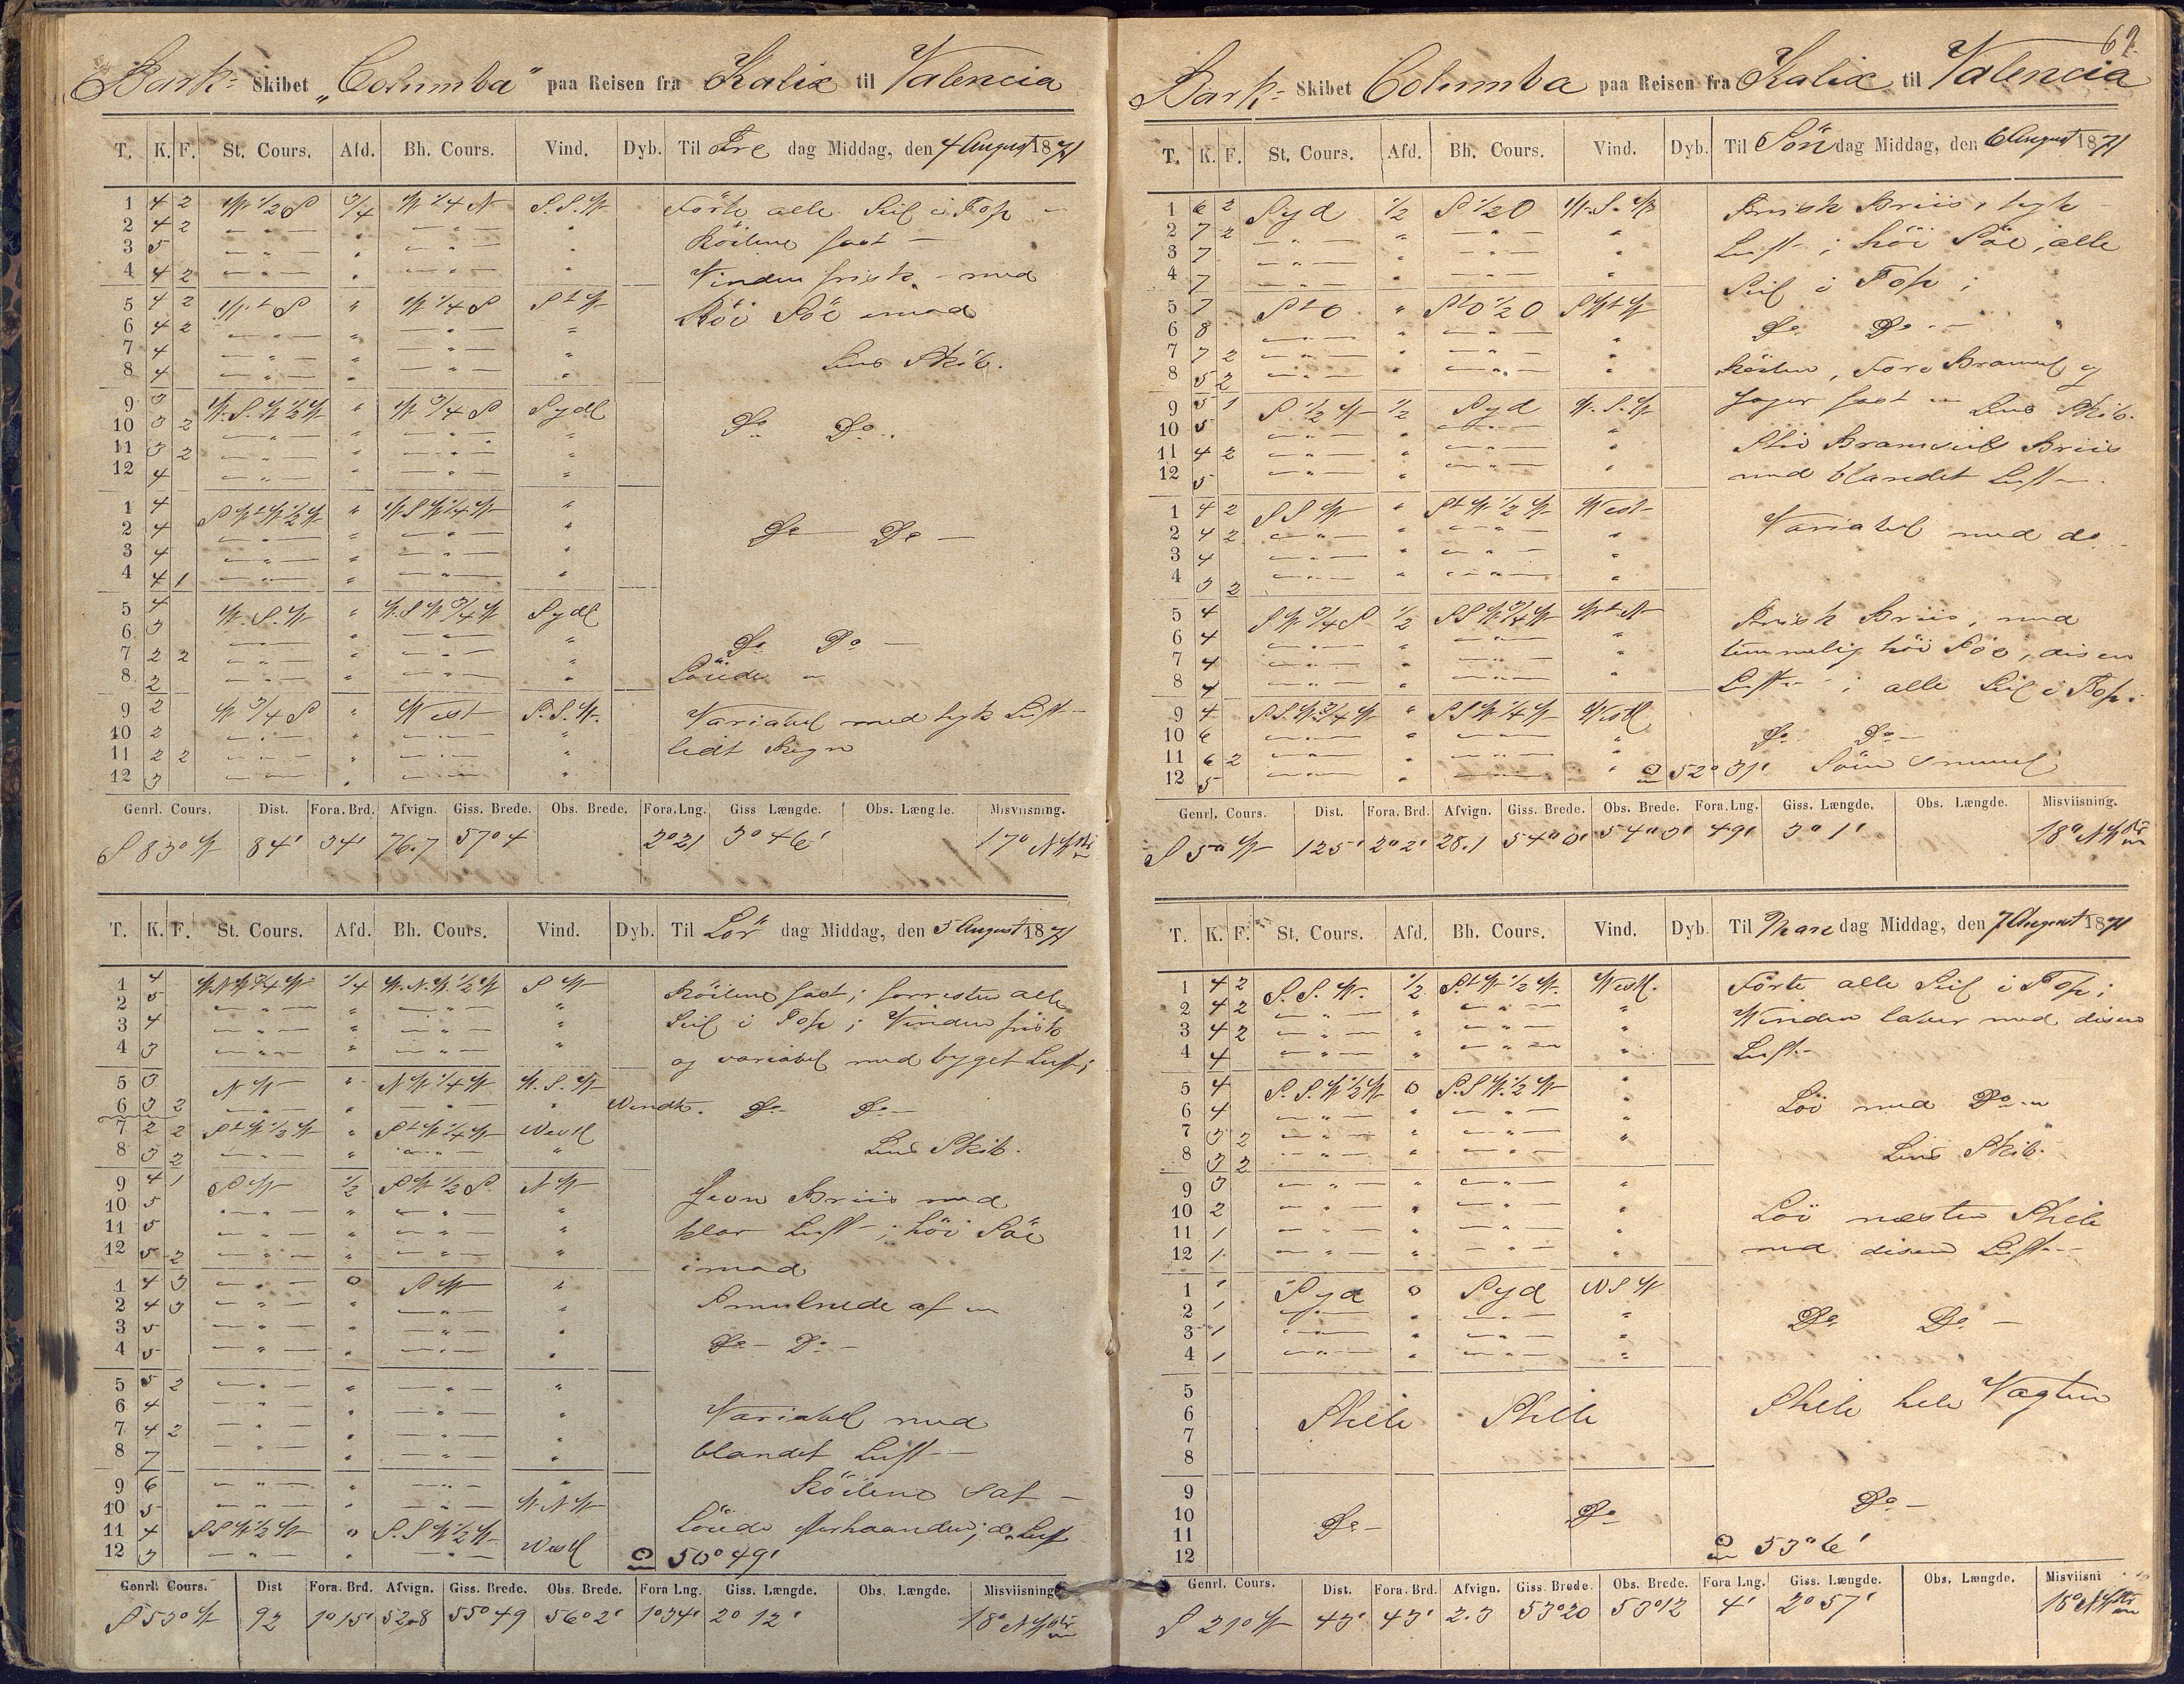 Bark- Skibet „Columba" paa Reisen fra Kalix til Valencia
T. K. F. St. Cours. Afd. Bh. Cours. Vind. Dyb. Til Fre dag Middag, den 4 August 1871
1 4 2 W 1/2 S 3/4 W 1/4 N S.S.W Förte alle Seil i Top -
2 4 2 — " — " — " — "
3 5 — " — " — " — " Röilene fast —
4 4 2 — " — " — " — " Vinden frisk - med
5 4 2 W.t S " W 1/4 S S t W Höi Söe imod
6 4 2 — " — " — " — "
7 4 — " — " — " — "
8 4 — " — " — " — " Lens Skib.
9 3 W.S.W 1/2 W " W 3/4 S Sydl
10 3 2 — " — " — " — " Do Do
11 3 2 — " — " — " — "
12 4 — " — " — " — "
1 4 S W t W 1/2 W " W S W 1/4 W "
2 4 — " — " — " — " Do Do —
3 4 — " — " — " — "
4 4 1 — " — " — " — "
5 4 W.S.W " W.S W 3/4 W Sydl
6 3 — " — " — " — " Do Do —
7 2 2 — " — " — " — "
8 2 — " — " — " — " Löiede
9 2 W 3/4 S " West S.S.W. Variabel med tyk Luft -
10 2 — " — " — " — "
11 2 2 — " — " — " — " lidt Regn
12 3 — " — " — " — "
Genrl. Cours. Dist. Fora. Brd. Afvign. Giss. Brede. Obs. Brede. Fora.Lng. Giss Længde. Obs. Længde. Misviisning.
S 83° W 84' 34' 76.7 57°4 2°21 3° 46' 17° NW
T. K. F. St. Cours. Afd. Bh. Cours. Vind. Dyb. Til Lör dag Middag, den 5 August 1871
1 4 W.N W 3/4 W 1/4 W.N.W. 1/2 W S W Röilene fast; forresten alle
2 5 — " — " — " — "
3 4 — " — " — " — " Seil i Top; Vinden frisk
4 3 — " — " — " — " og variabel med byget Luft;
5 3 N W " N W. 1/4 W W.S.W
6 3 2 — " — " — " — " Vendte. Do Do —
7 2 2 S t W 1/2 W " S t W 1/4 W Westl
8 3 2 — " — " — " — " Lens Skib.
9 4 1 S W 1/2 S W 1/2 S N W Jevn Briis med
10 5 — " — " — " — "
11 5 — " — " — " — " klar Luft -; höi Söe
12 5 2 — " — " — " — " imod
1 4 3 — " — 0 S W "
2 4 3 — " — " — " — " Smulnede af
3 5 — " — " — " — "
4 5 — " — " — " — " Do - Do -
5 5 2 — " — " — " — "
6 4 — " — " — " — " Variabel med
7 4 2 — " — " — " — "
8 7 — " — " — " — " blandet Luft —
9 6 — " — " — " — " Röilene sat —
10 5 — " — " — " — W.N W
11 4 S S W 1/2 W 0 S.S W 1/2 W Westl Löiede efterhaanden; do Luft
12 3 — " — " — " — 50° 49'
Genrl. Cours. Dist Fora. Brd. Afvign. Giss. Brede. Obs. Brede. Fora Lng. Giss. Længde. Obs. Længde. Misviisning
S 53° W 92 1° 15' 52.8 55° 49 56° 2' 1°34' 2° 12' 18° NW
62
Bark- Skibet Columba paa Reisen fra Kalix til Valencia
T. K. F. St. Cours. Afd. Bh. Cours. Vind. Dyb. Til Sön dag Middag, den 6 August 1871
1 6 2 Syd 1/2 S 1/2 O W.S.W Frisk Briis, tyk
2 7 2 — " — " — " — " Luft -; höi Söe, alle
3 7 — " — " — " — "
4 7 — " — " — " — " Seil i Top;
5 7 S t O " S t O 1/2 O S W t W
6 8 — " — " — " — " Do Do —
7 7 2 — " — " — " — "
8 5 2 — " — " — " — " Röilen, Fore Bramseil og
9 5 1 S. 1/2 W 1/2 Syd W.S.W Jager fast — Lens Skib.
10 5 — " — " — " — "
11 4 2 — " — " — " — " Stiv Bramseils Briis
12 5 — " — " — " — " med blandet Luft —.
1 4 2 S S W " S t W 1/2 W West
2 4 2 — " — " — " — " Variabel med do -
3 4 — " — " — " — "
4 3 2 — " — " — " — "
5 4 S W 3/4 S 1/2 S S W 3/4 W W t N Frisk Briis, med
6 4 — " — " — " — "
7 4 — " — " — " — " temmelig höi Söe, disen
8 4 — " — " — " — " Luft - ; alle Seil i Top.
9 4 S.S.W 3/4 W " S S W 1/4 W Westl
10 6 — " — " — " — " Do Do —
11 6 2 — " — " — " — "
12 5 — " — " — " — " 52° 31' Söen smul
Genrl. Cours. Dist. Fora. Brd. Afvign. Giss. Brede. Obs. Brede. Fora.Lng. Giss. Længde. Obs. Længde. Misviisning.
S 5° W 125' 2° 2' 28.1 54° 0' 54° 3' 49' 3° 1' 18° NW
T. K. F. St. Cours. Afd. Bh. Cours. Vind. Dyb. Til Man dag Middag, den 7 August 1871
1 4 2 S. S. W. 1/2 S.t W 1/2 W. Westl. Förte alle Seil i Top;
2 4 2 — " — " — " — "
3 4 2 — " — " — " — " Vinden laber med disen
4 4 — " — " — " — " Luft —
5 4 S. S. W 1/2 W 0 S.S W. 1/2 W "
6 4 — " — " — " — " Löi med Do
7 3 2 — " — " — " — "
8 3 2 — " — " — " — " Lens Skib.
9 3 — " — " — " — "
10 2 — " — " — " — " Löi næsten Stille
11 1 — " — " — " — "
12 1 — " — " — " — " med disen Luft —
1 1 Syd 0 Syd W S W
2 1 — " — " — " — "
3 1 — " — " — " — " Do Do —
4 1 — " — " — " — "
5
6 Stille Stille Stille hele Vagten
7
8
9
10 Do — Do Do —
11
12 53° 6'
Genrl. Cours. Dist. Fora. Brd. Afvign. Giss. Brede. Obs. Brede. Fora Lng. Giss. Længde. Obs. Længde. Misviisni
S 21° W 43' 43' 2.3 53°20 53°12 4' 2° 57' 18° NW